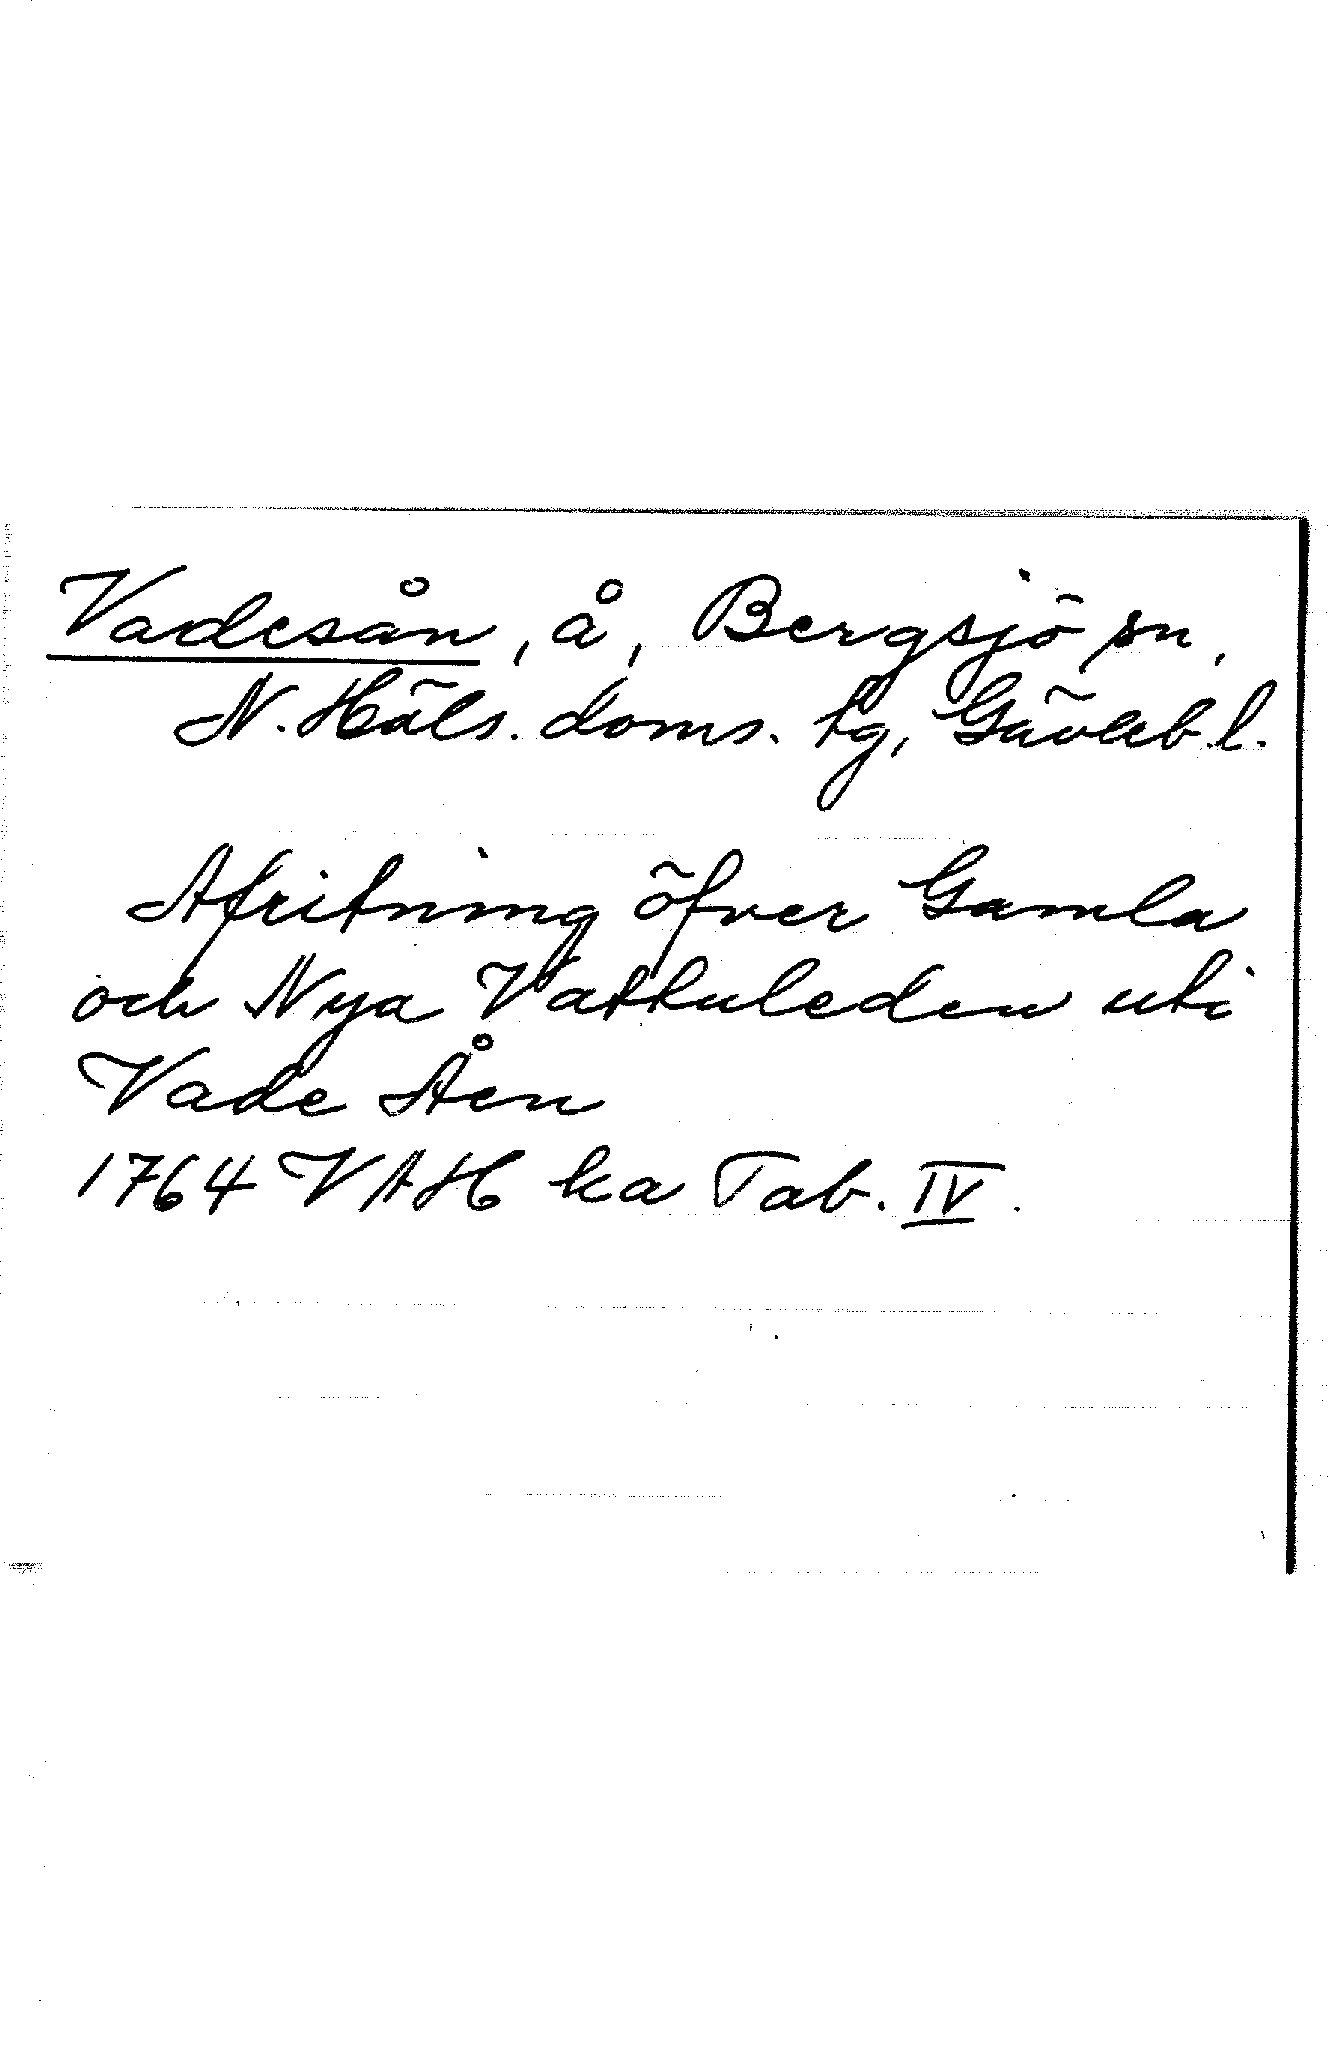 Vadesån, å, Bergsjö sn,
N. Häls. doms. tg, Gävleb. l.
Afritning öfver Gamla
och Nya Vattuleden uti
Vade Åen
1764 VAH ka Tab. IV.